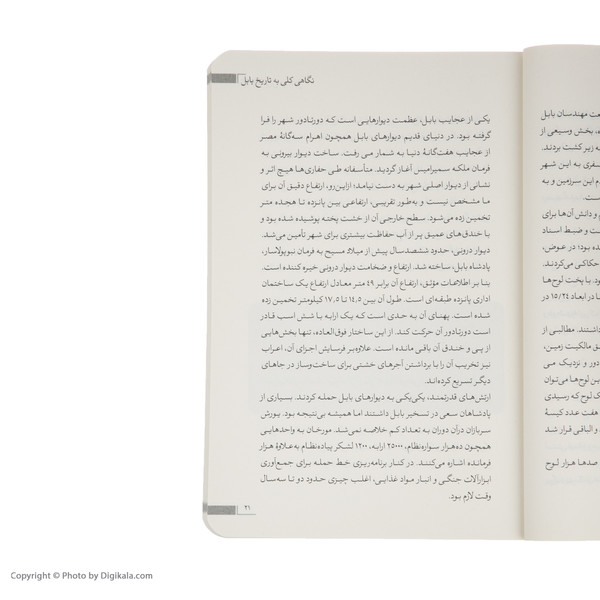 نگاهی کلی به تاریخ بابل
یکی از عجایب بابل، عظمت دیوارهایی است که دورتادور شهر را فرا
گرفته بود. در دنیای قدیم دیوارهای بابل همچون اهرام سه‌گانهٔ مصر
از عجایب هفت‌گانهٔ دنیا به شمار می رفت. ساخت دیوار بیرونی به
فرمان ملکه سمیرامیس آغاز گردید. متأسفانه طی حفاری‌ها هیچ اثر و
نشانی از دیوار اصلی شهر به دست نیامد؛ ازاین‌رو، ارتفاع دقیق آن برای
ما مشخص نیست و به‌طور تقریبی، ارتفاعی بین پانزده تا هجده متر
تخمین زده می‌شود. سطح خارجی آن از خشت پخته پوشیده شده بود و
با خندق‌های عمیق پر از آب حفاظت بیشتری برای شهر تأمین می‌شد.
دیوار درونی، حدود ششصدسال پیش از میلاد مسیح به فرمان نبوپولاسار،
پادشاه بابل، ساخته شد. ارتفاع و ضخامت دیوار درونی خیره کننده است.
بنا بر اطلاعات موثق، ارتفاع آن برابر ۴۹ متر معادل ارتفاع یک ساختمان
اداری پانزده طبقه‌ای است. طول آن بین ۱۴٫۵ تا ۱۷٫۵ کیلومتر تخمین زده
شده است. پهنای آن به حدی است که یک ارابه با شش اسب قادر
است دورتادور آن حرکت کند. از این ساختار فوق‌العاده، تنها بخش‌هایی
از پی و خندق آن باقی مانده است. علاوه‌بر فرسایش اجزای آن، اعراب
نیز تخریب آن را با برداشتن آجرهای خشتی برای ساخت‌وساز در جاهای
دیگر تسریع کرده‌اند.
ارتش‌های قدرتمند، یکی‌یکی به دیوارهای بابل حمله کردند. بسیاری از
پادشاهان سعی در تسخیر بابل داشتند اما همیشه بی‌نتیجه بود. یورش
سربازان درآن دوران به تعداد کم خلاصه نمی‌شد. مورخان به واحدهایی
همچون ده‌هزار سواره‌نظام، ۲۵۰۰۰ ارابه، ۱۲۰۰ لشکر پیاده‌نظام به‌علاوهٔ هزار
فرمانده اشاره می‌کنند. در کنار برنامه‌ریزی خط حمله برای جمع‌آوری
ابزارآلات جنگی و انبار مواد غذایی، اغلب چیزی حدود دو تا سه‌سال
وقت لازم بود.
۲۱
مت مهندسان بابل
ه، بخش وسیعی از
ه زیر کشت بردند.
سفری به این شهر
م این سرزمین و به
است.
و دانش آن‌ها برای
ت و ضبط اسناد
ده بود؛ در عوض،
حکاکی می‌کردند.
ود. با پخت لوح‌ها
نا در ابعاد ۱۵/۲۴ در
اشتند. مطالبی از
ق مالکیت زمین،
دور و نزدیک می
ین لوح‌ها می‌توان
ک لوح که رسیدی
هفت عدد کیسهٔ
و الباقی قرار شد
صدها هزار لوح
Copyright © Photo by Digikala.com